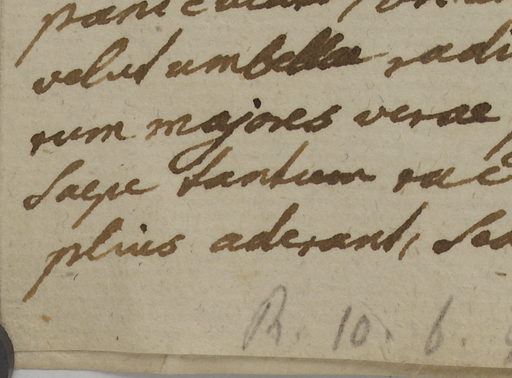 velut umbellae radi
rum majores verae
saepe tantum rac
plius aderant, sed
R. 10. 6.